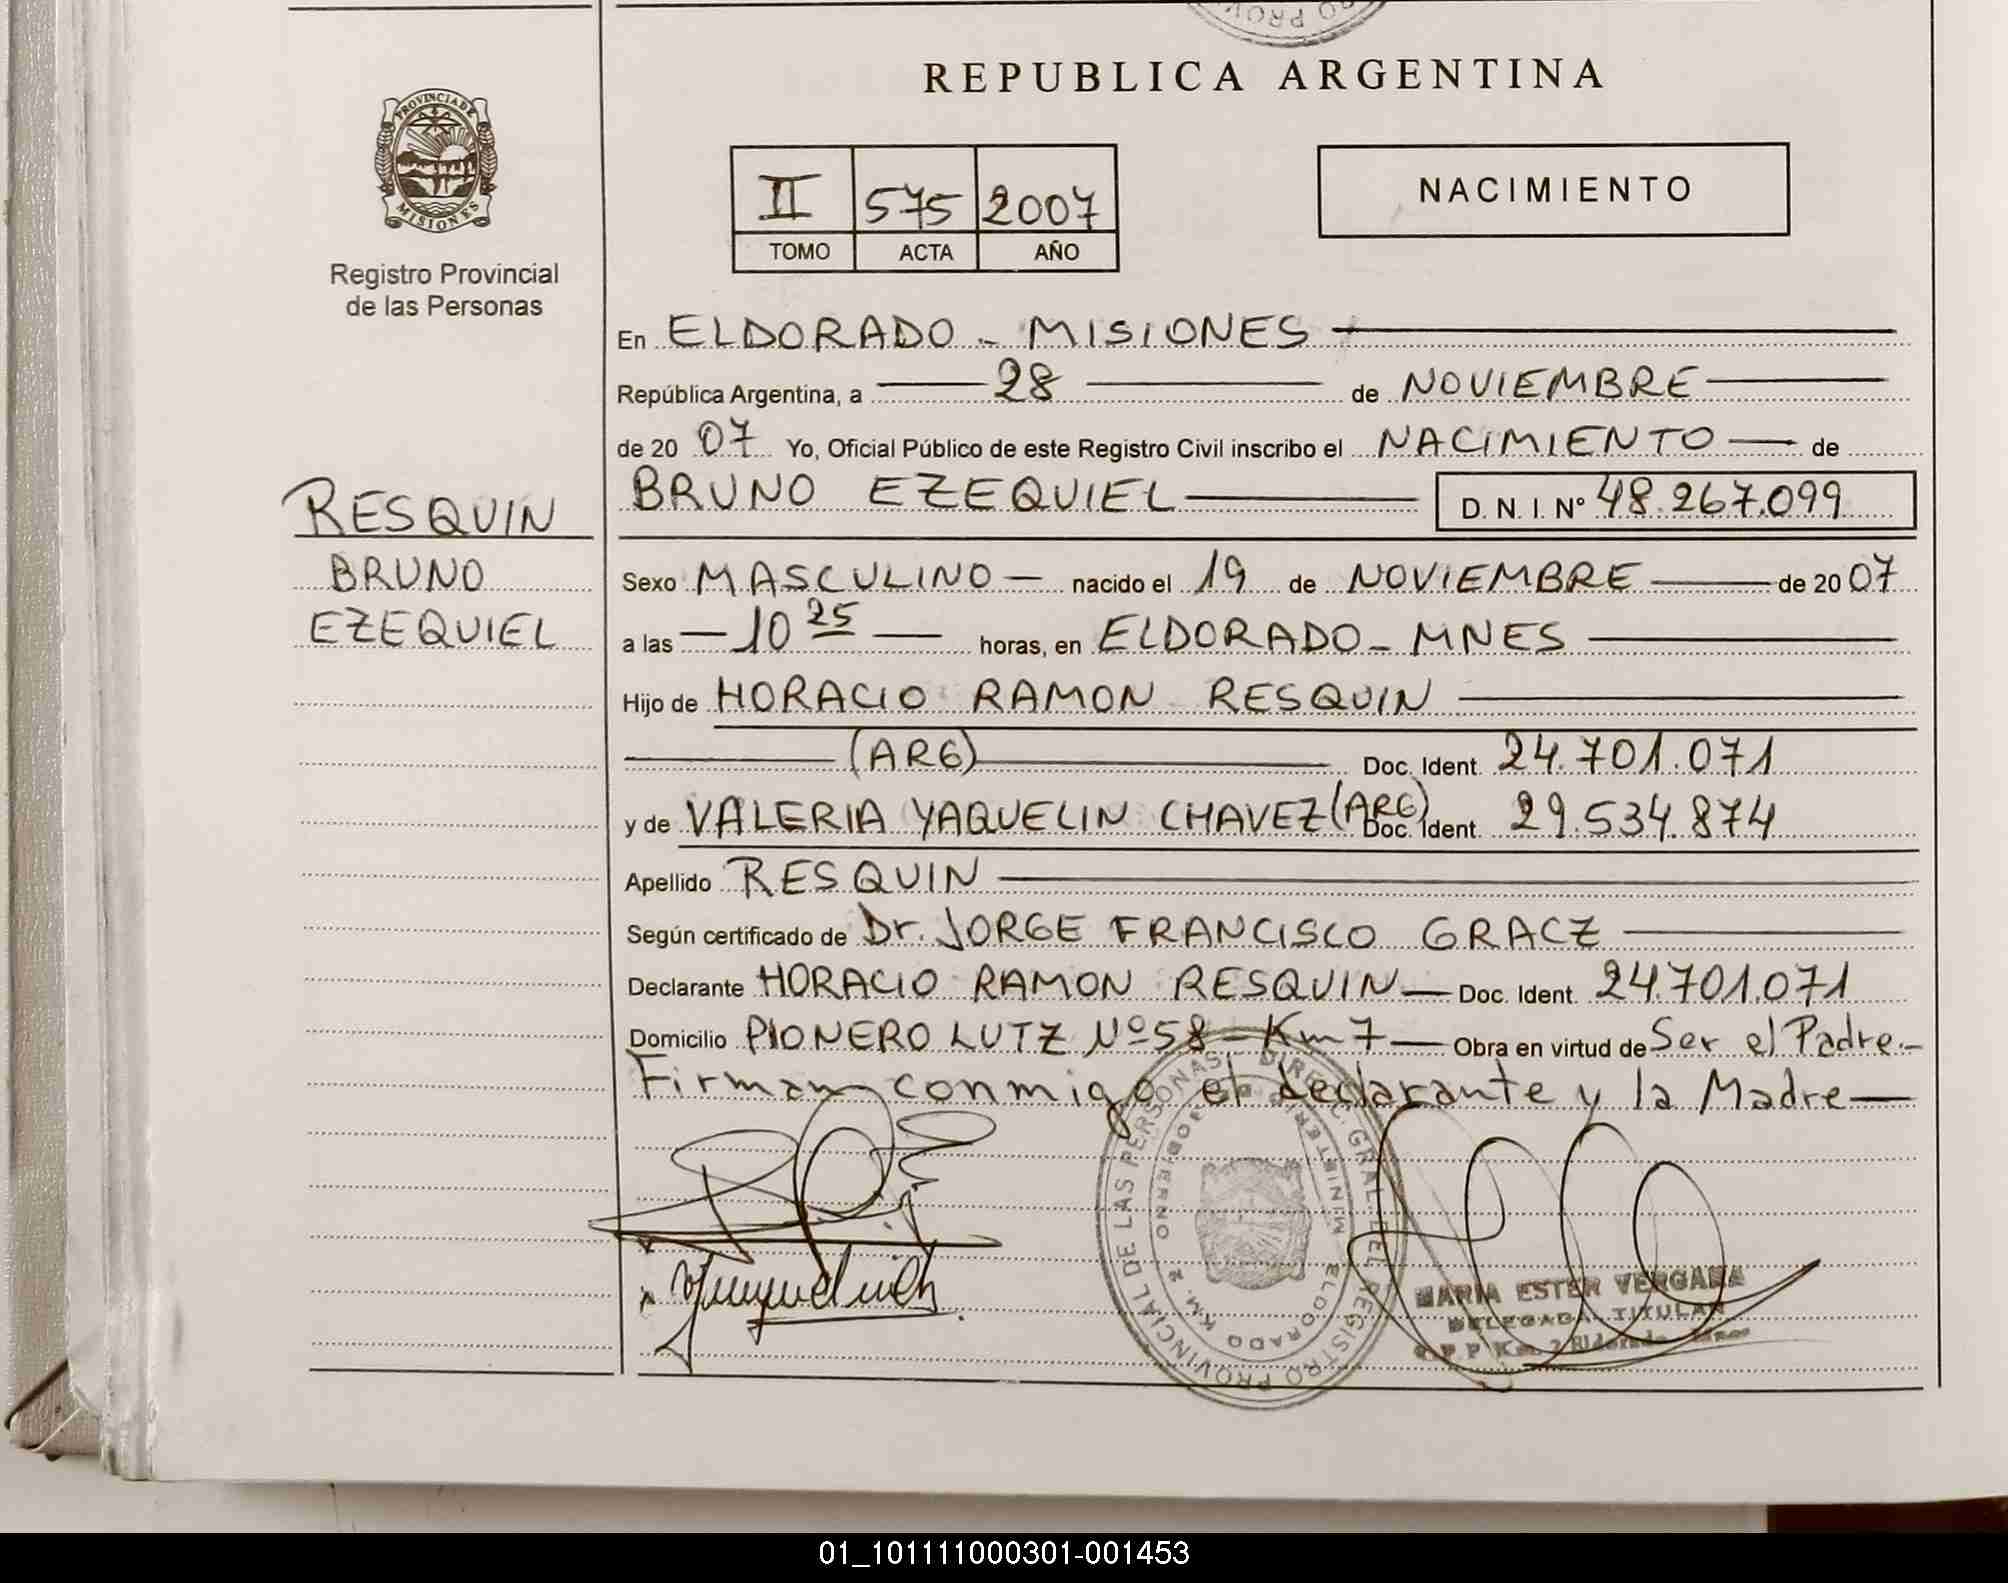 REPUBLICA ARGENTINA
PROVINCIA DE
MISIONES
Registro Provincial
de las Personas
II 575 2007
TOMO ACTA AÑO
NACIMIENTO
En ELDORADO - MISIONES
República Argentina, a 28 de NOVIEMBRE
de 20 07 Yo, Oficial Público de este Registro Civil inscribo el NACIMIENTO de
BRUNO EZEQUIEL D. N. I. Nº 48.267.099
RESQUIN
BRUNO
EZEQUIEL
Sexo MASCULINO nacido el 19 de NOVIEMBRE de 20 07
a las 10 25 horas, en ELDORADO - MNES
Hijo de HORACIO RAMON RESQUIN
(ARG) Doc. Ident. 24.701.071
y de VALERIA YAQUELIN CHAVEZ (ARG) Doc. Ident. 29.534.874
Apellido RESQUIN
Según certificado de Dr. JORGE FRANCISCO GRACZ
Declarante HORACIO RAMON RESQUIN Doc. Ident. 24.701.071
Domicilio PIONERO LUTZ Nº 58 - Km 7 Obra en virtud de Ser el Padre.-
Firman conmigo el declarante y la Madre
MARIA ESTER VERGARA
DELEGADA TITULAR
01_101111000301-001453